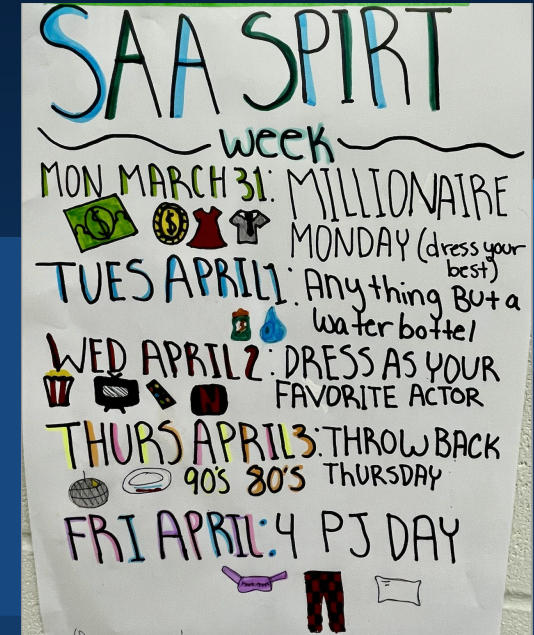 SAA SPIRT
week
MON MARCH 31: MILLIONAIRE
MONDAY (dress your
best)
TUES APRIL 1: Anything But a
water bottel
WED APRIL 2: DRESS AS YOUR
FAVORITE ACTOR
THURS APRIL 3: THROW BACK
90's 80's THURSDAY
FRI APRIL: 4 PJ DAY